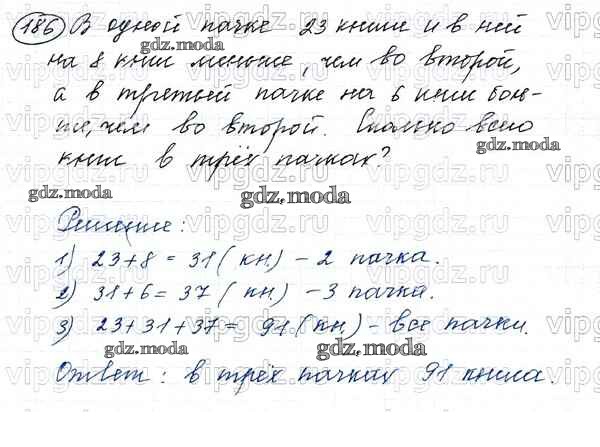 186 В одной пачке 23 книги и в ней
на 8 книг меньше, чем во второй,
а в третьей пачке на 6 книг боль-
ше, чем во второй. Сколько всего
книг в трёх пачках?
Решение:
1) 23+8 = 31 (кн.) - 2 пачка.
2) 31+6 = 37 (кн.) - 3 пачка.
3) 23+31+37 = 91 (кн.) - все пачки.
Ответ: в трёх пачках 91 книга.
gdz.moda
vipgdz.ru